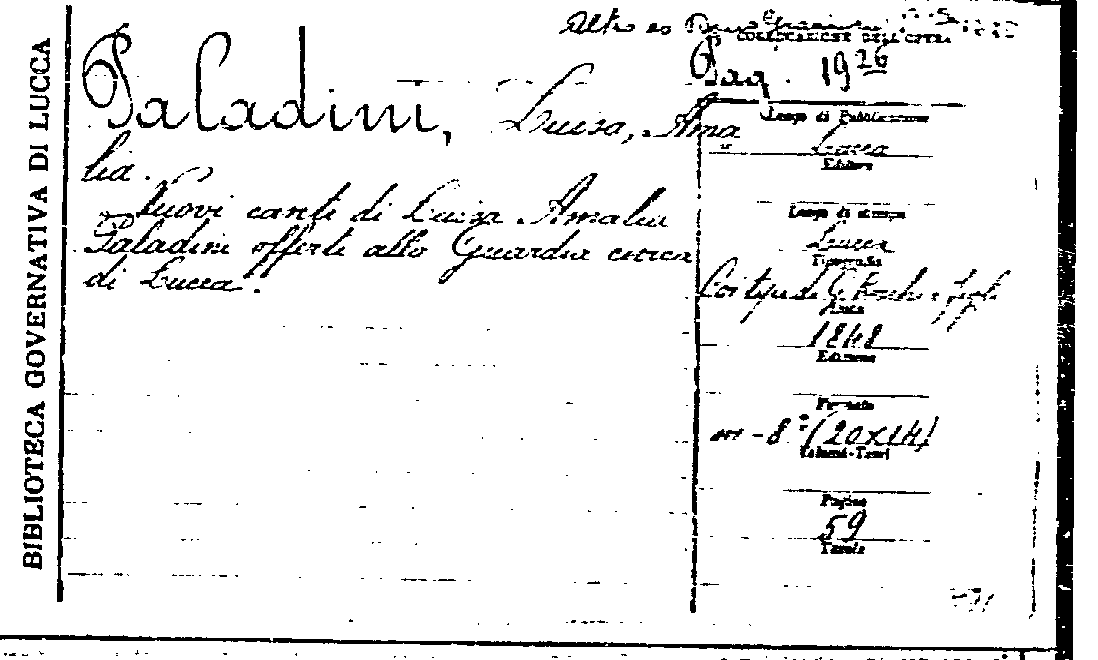 BIBLIOTECA GOVERNATIVA DI LUCCA
Altro es
COLLOCAZIONE DELL'OPERA
Pag. 19 26
Paladini, Luisa, Ama
lia.
Nuovi canti di Luisa Amalia
Paladini offerti alla Guardia civica
di Lucca.
Luogo di Pubblicazione
Lucca
Editore
Luogo di stampa
Lucca
Tipografia
Coi tipi di
Anno
1848
Edizione
Formato
in-8° (20x14)
Volumi-Tomi
Pagine
59
Tavole